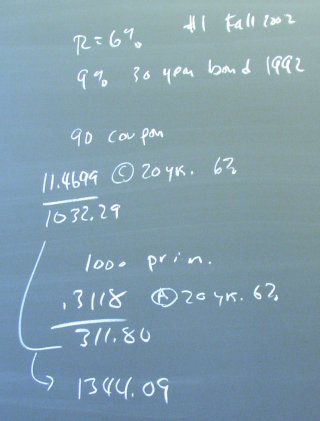 #1 Fall 2002
R=6%
9% 30 year bond 1992
90 coupon
11.4699 Ⓒ 20 yr. 6%
1032.29
1000 prin.
.3118 Ⓐ 20 yr. 6%
311.80
1344.09